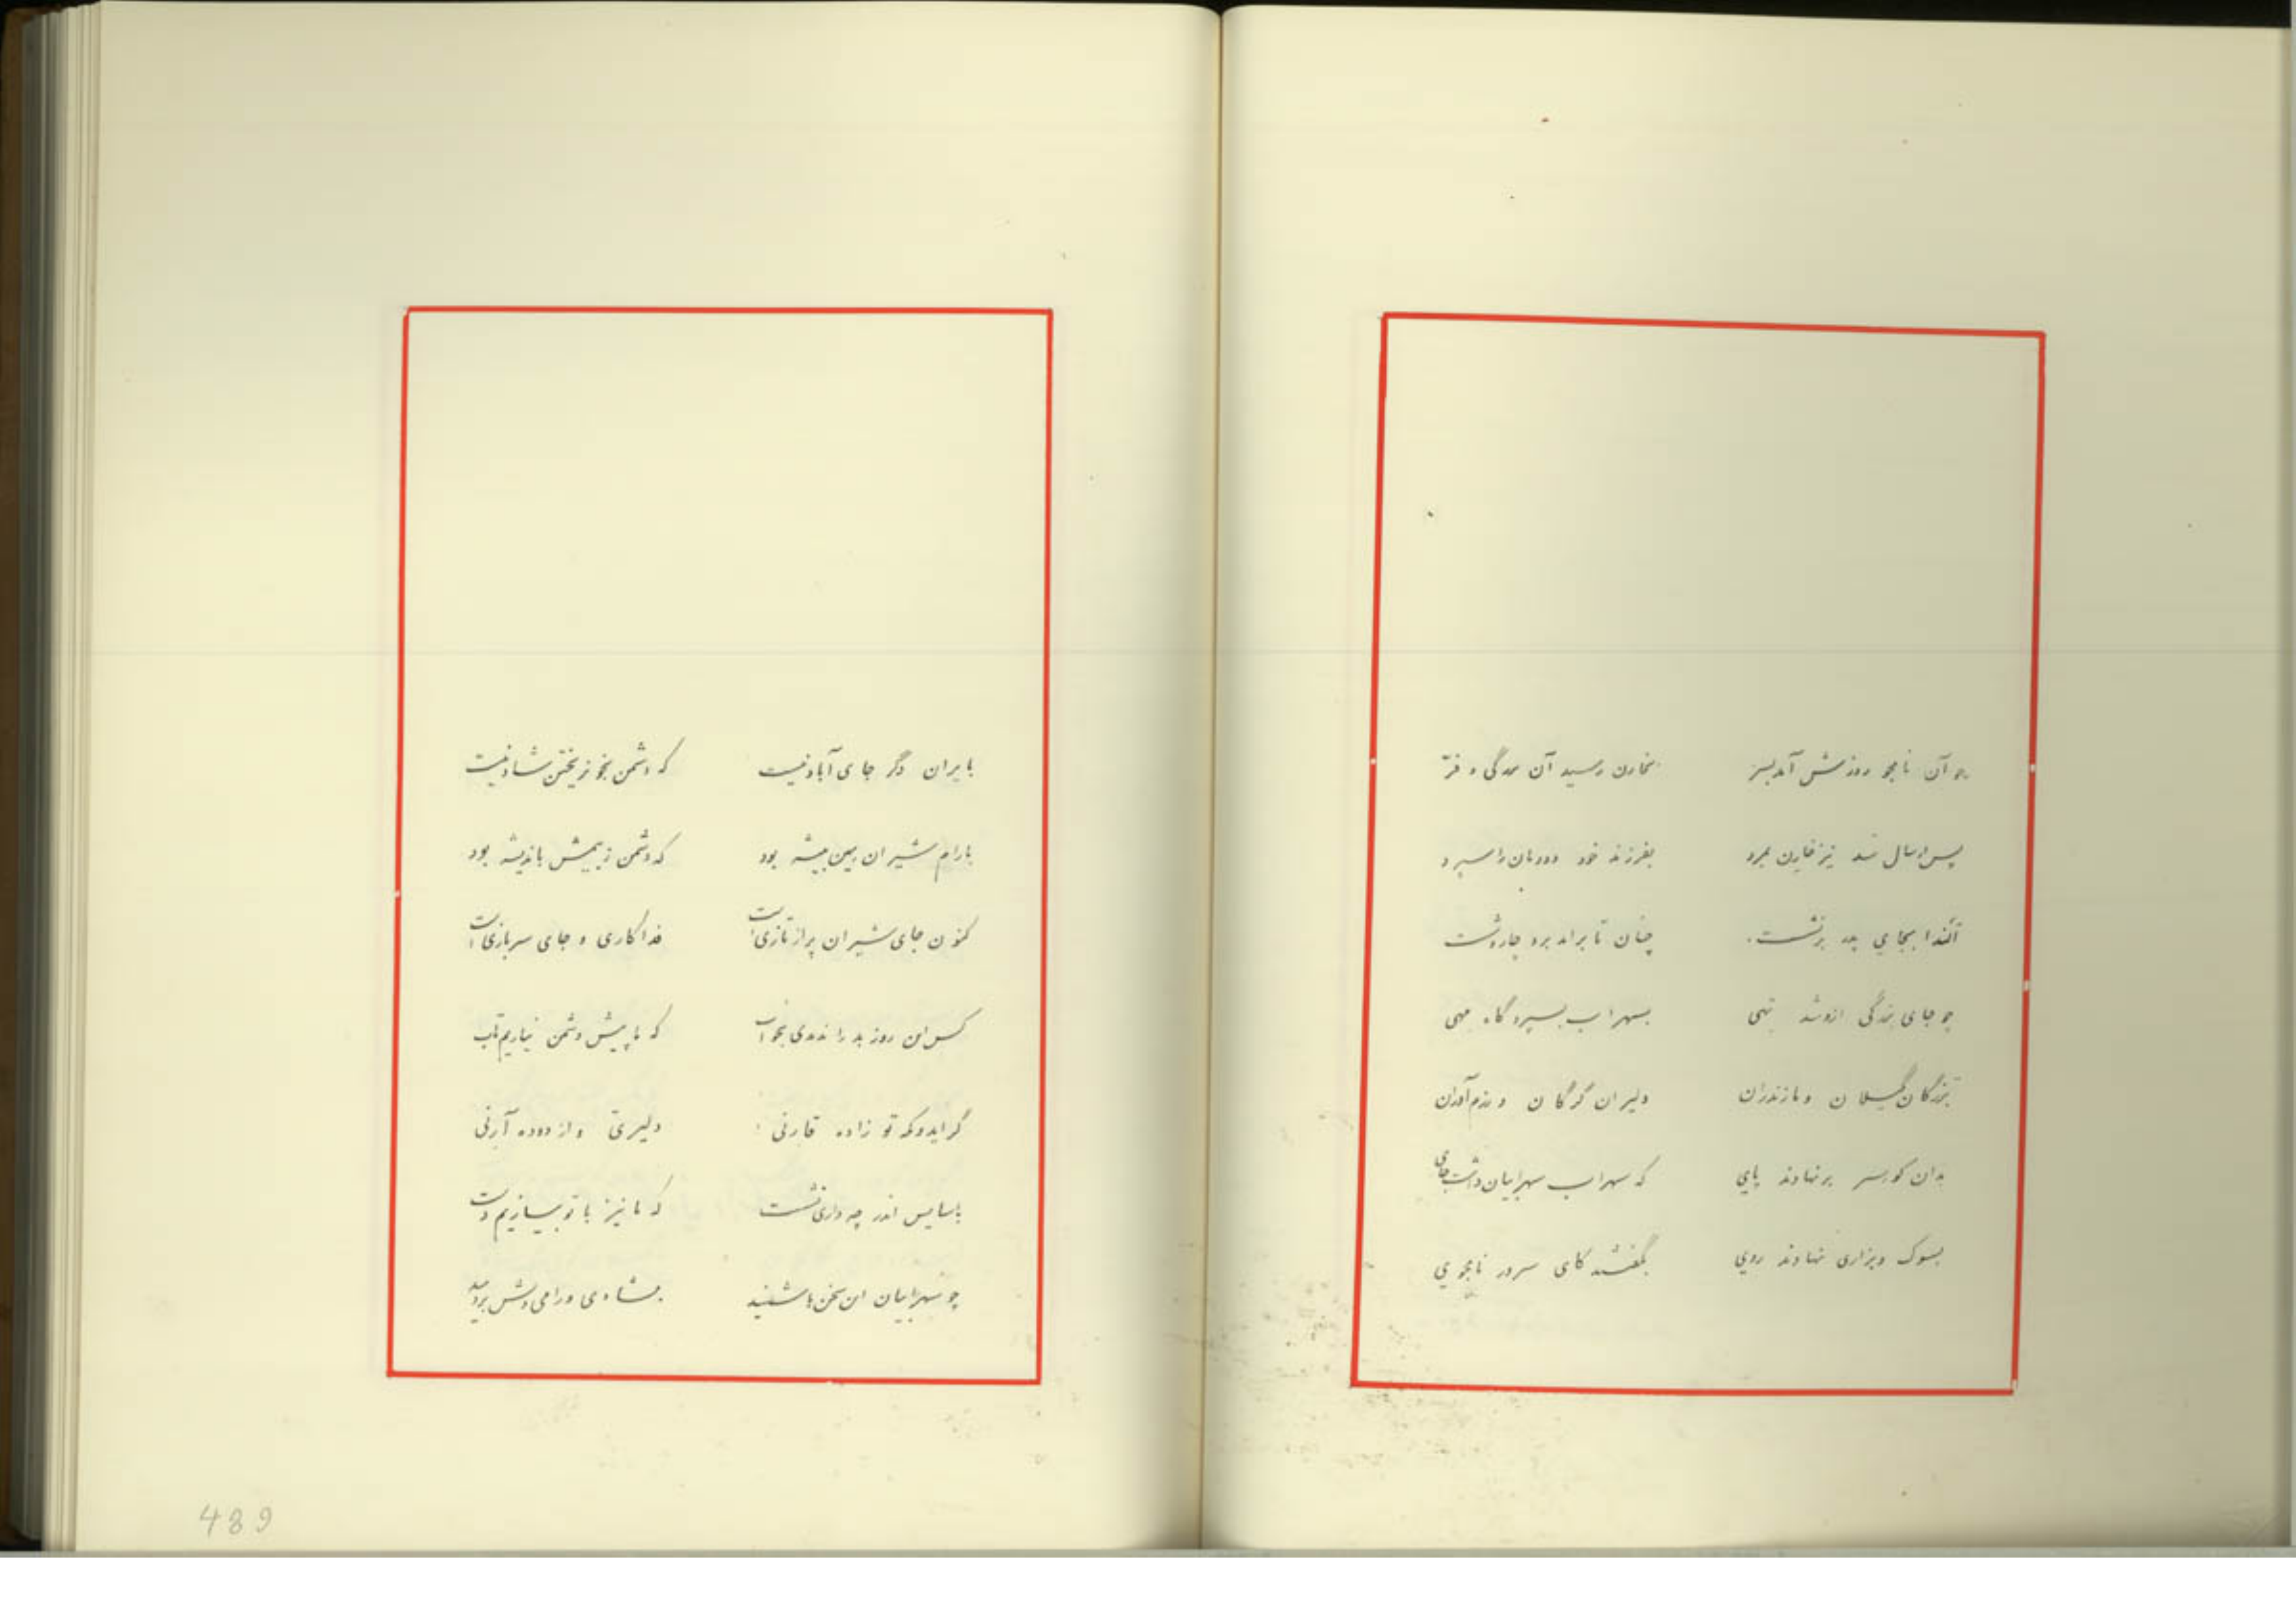 چو آن نامجو روزش آمد بسر بخارن رسید آن مهی و فرّ
پس از سال شد نیز قارن بمرد بفرزند خود دودمان را سپرد
آلندا بجای پدر برنشست چنان تا برآمد برو چار و شست
چو جای بزرگی ازو شد تهی بسهراب بسپرد گاه مهی
بزرگان گیلان و مازندران دلیران گرگان و رزم‌آوران
بدان کو بسر برنهادند پای که سهراب سهرابیان داشت جای
بسوک و بزاری نهادند روی بگفتند کای سرور نامجوی
بایران دگر جای آباد نیست که دشمن بخونریختن شاد نیست
بآرام شیران بهین بیشه بود که دشمن ز بیمش باندیشه بود
کنون جای شیران پر از تازی است فداکاری و جای سربازی است
کس این روز بد را ندیدی بخواب که ما پیش دشمن نیاریم تاب
گر ایدونکه تو زاده قارنی دلیری و از دوده آرنی
بآسایش اندر چه داری نشست که ما نیز با تو بسازیم دست
چو سهرابیان این سخن‌ها شنید بشادی و رامی دلش بردمید
489